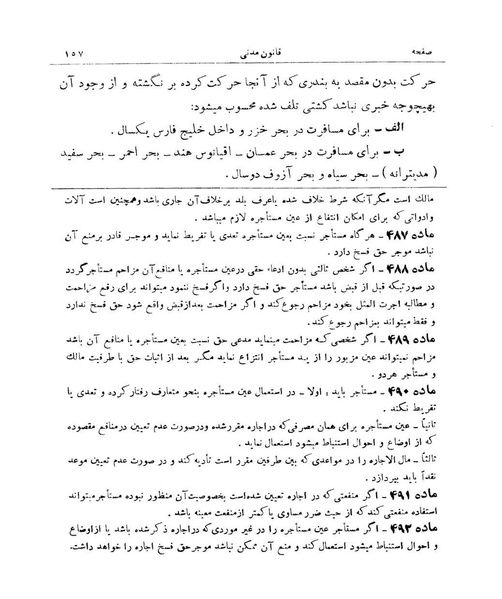 صفحه قانون مدنی ۱۵۷
حرکت بدون مقصد به بندری که از آنجا حرکت کرده بر نگشته و از وجود آن
بهیچوجه خبری نباشد کشتی تلف شده محسوب میشود:
الف - برای مسافرت در بحر خزر و داخل خلیج فارس یکسال.
ب - برای مسافرت در بحر عمان - اقیانوس هند - بحر احمر - بحر سفید
(مدیترانه) - بحر سیاه و بحر آزوف دوسال.
مالک است مگر آنکه شرط خلاف شده یا عرف بلد بر خلاف آن جاری باشد و همچنین است آلات
و ادواتی که برای امکان انتفاع از عین مستأجره لازم میباشد.
ماده ۴۸۷ - هر گاه مستأجر نسبت بعین مستأجره تعدی یا تفریط نماید و موجر قادر بر منع آن
نباشد موجر حق فسخ دارد.
ماده ۴۸۸ - اگر شخص ثالثی بدون ادعاء حقی در عین مستأجره یا منافع آن مزاحم مستأجر گردد
در صورتیکه قبل از قبض باشد مستأجر حق فسخ دارد و اگر فسخ ننمود میتواند برای رفع مزاحمت
و مطالبه اجرت المثل بخود مزاحم رجوع کند و اگر مزاحمت بعد از قبض واقع شود حق فسخ ندارد
و فقط میتواند بمزاحم رجوع کند.
ماده ۴۸۹ - اگر شخصی که مزاحمت مینماید مدعی حق نسبت بعین مستأجره یا منافع آن باشد
مزاحم نمیتواند عین مزبور را از ید مستأجر انتزاع نماید مگر بعد از اثبات حق با طرفیت مالک
و مستأجر هر دو.
ماده ۴۹۰ - مستأجر باید: اولا - در استعمال عین مستأجره بنحو متعارف رفتار کرده و تعدی یا
تفریط نکند.
ثانیاً - عین مستأجره برای همان مصرفی که در اجاره مقرر شده و در صورت عدم تعیین در منافع مقصوده
که از اوضاع و احوال استنباط میشود استعمال نماید.
ثالثاً - مال الاجاره را در مواعدی که بین طرفین مقرر است تأدیه کند و در صورت عدم تعیین موعد
نقداً باید بپردازد.
ماده ۴۹۱ - اگر منفعتی که در اجاره تعیین شده است بخصوصیت آن منظور نبوده مستأجر میتواند
استفاده منفعتی کند که از حیث ضرر مساوی یا کمتر از منفعت معینه باشد.
ماده ۴۹۲ - اگر مستأجر عین مستأجره را در غیر موردی که در اجاره ذکر شده باشد یا از اوضاع
و احوال استنباط میشود استعمال کند و منع آن ممکن نباشد موجر حق فسخ اجاره را خواهد داشت.